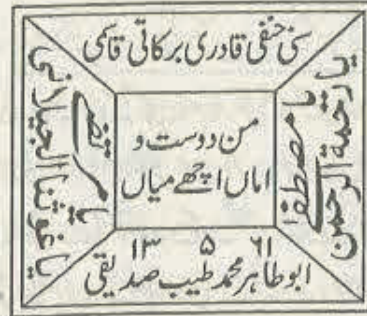 سنی حنفی قادری برکاتی قاسمی
یا رحمۃ الرحمن
یا مصطفےٰ
من دوست و
اماں اچھے میاں
یا مرتضےٰ
یا غوثنا الجیلانی
۶۱ ۵ ۱۳
ابو طاہر محمد طیب صدیقی